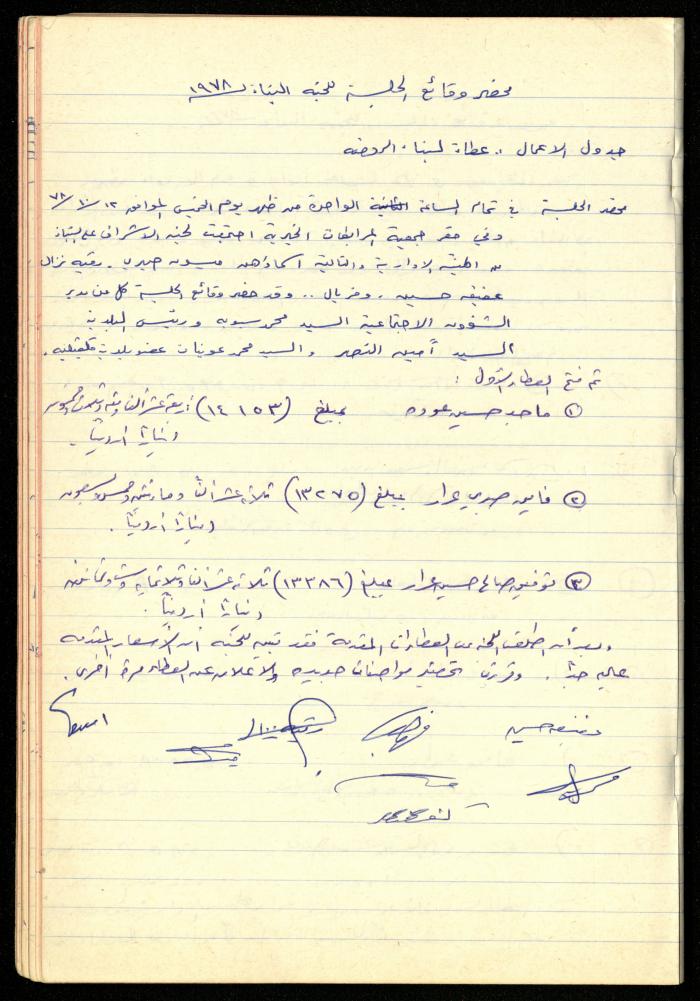 محضر وقائع الجلسة للجنة البناء ١٩٧٨
جدول الاعمال :. عطاء لبناء الروضه
عقد الجلسة في تمام الساعة الثانية الواحدة من ظهر يوم الخميس الموافق ١٢ /١٠/ ٧٨
وفي مقر جمعية المرابطات الخيرية اجتمعت لجنة الاشراف على البناء
من الهيئة الادارية والتالية اسماؤهن ميسون صبري . رقيه نزال
عفيفه حسين . وفريال .. وقد حضر وقائع الجلسة كل من مدير
الشؤون الاجتماعية السيد محمد ورئيس البلدية
السيد أمين النصر والسيد محمد عوينات عضو بلدية قلقيلية .
تم فتح العطاء الأول :
① ماجد حسين عوده بمبلغ (١٤١٥٣) أربعة عشر ألف ومئه وثلاث وخمسون
ديناراً أردنياً .
② فايس صبري عرار بمبلغ (١٣٢٧٥) ثلاثة عشر ألفاً ومائتين وخمس وسبعون
ديناراً أردنياً .
③ توفيق صالح حسين عرار بمبلغ (١٣٣٨٦) ثلاثة عشر ألفاً وثلاثمايه وست وثمانين
ديناراً أردنياً .
وبعد أن اطلعت اللجنة على العطاءات المقدمة فقد تبين للجنة أن الأسعار المقدمه
عاليه جداً . وقررن تحضير مواصفات جديده والاعلان عن العطاء مرة أخرى .
عفيفه حسين